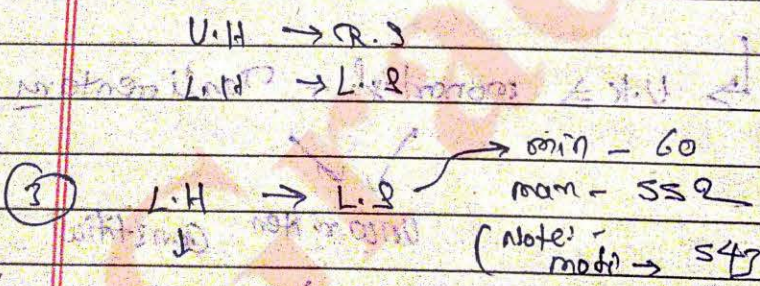 U.H → R.S
L.H → L.S
③ L.H → L.S → min - 60
max - 552
(Note: -
modi → 543